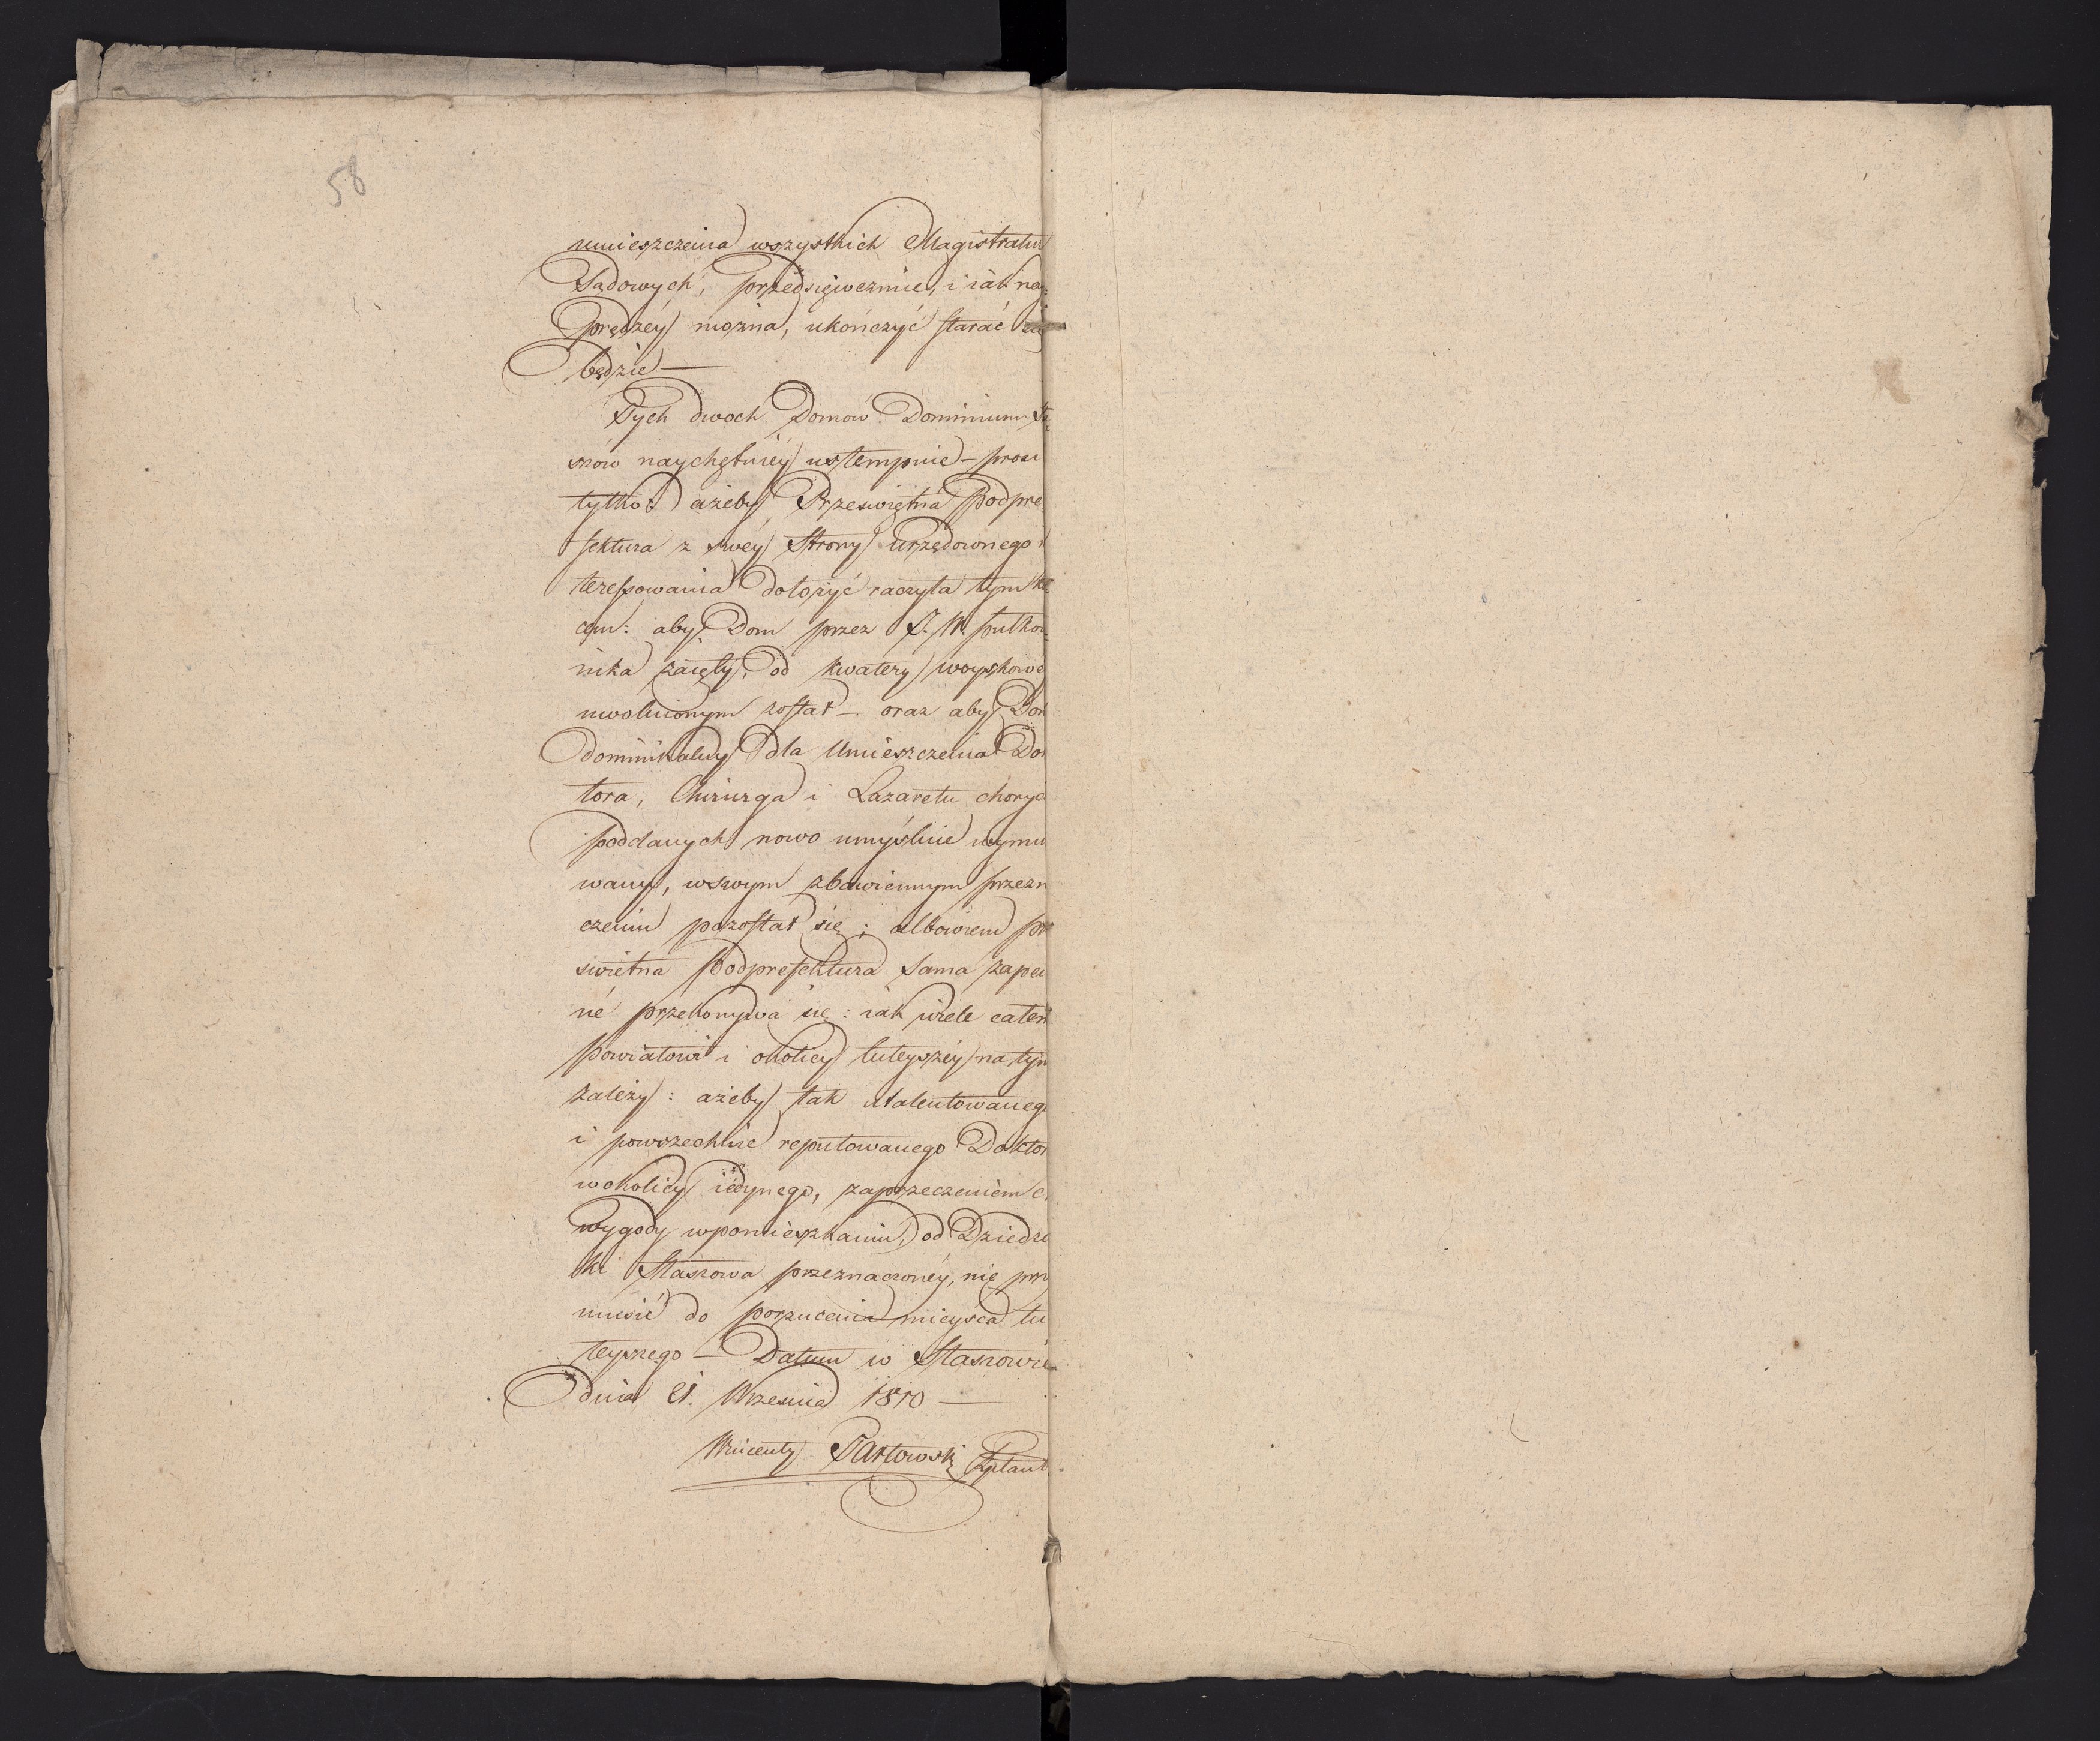 58
umieszczenia wszystkich Magistratur
Sądowych, przedsięwezmie, i iak nay:
prędzéy można, ukończyć starać się
będzie —
Tych dwoch Domow Dominium Sta:
szów naychętniéy ustempuie – prosi
tylko: ażeby Prześwietna Podpre
fektura z swéy Strony Urzędownego in
teressowania dołożyć raczyła tym ko
cem: aby Dom przez J. W. Pułkow:
nika zaięty, od kwatery woyskowey
uwolnionym został – oraz aby Dom
dominikalny dla Umieszczenia Dok
tora, Chirurga i Lazaretu chorych
poddanych nowo umyślnie wymu
wany, w swym zbawiennym przezna
czeniu pozostał się; albowiem prze
swietna Podprefektura Sama zapew
né przekonywa się: iak wiele całem
powiatowi i okolicy tuteyszéy na tym
zależy: ażeby tak utalentowanego
i powszechnie reputowanego Doktora
w okolicy iedynego, zaprzeczeniem
wygody w pomieszkaniu, od Dziedzi
ki Staszowa przeznaczonéy, nie przy
musić do porzucenia mieysca tu
teyszego — Datum w Staszowie
dnia 21. Wrzesnia 1810 —
Wincenty Tarłowski Pplent